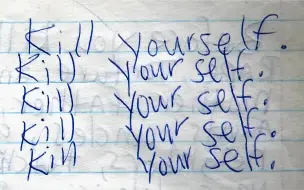 Kill yourself.
Kill Your self.
Kill Your self.
Kill Your self.
Kill Your self.